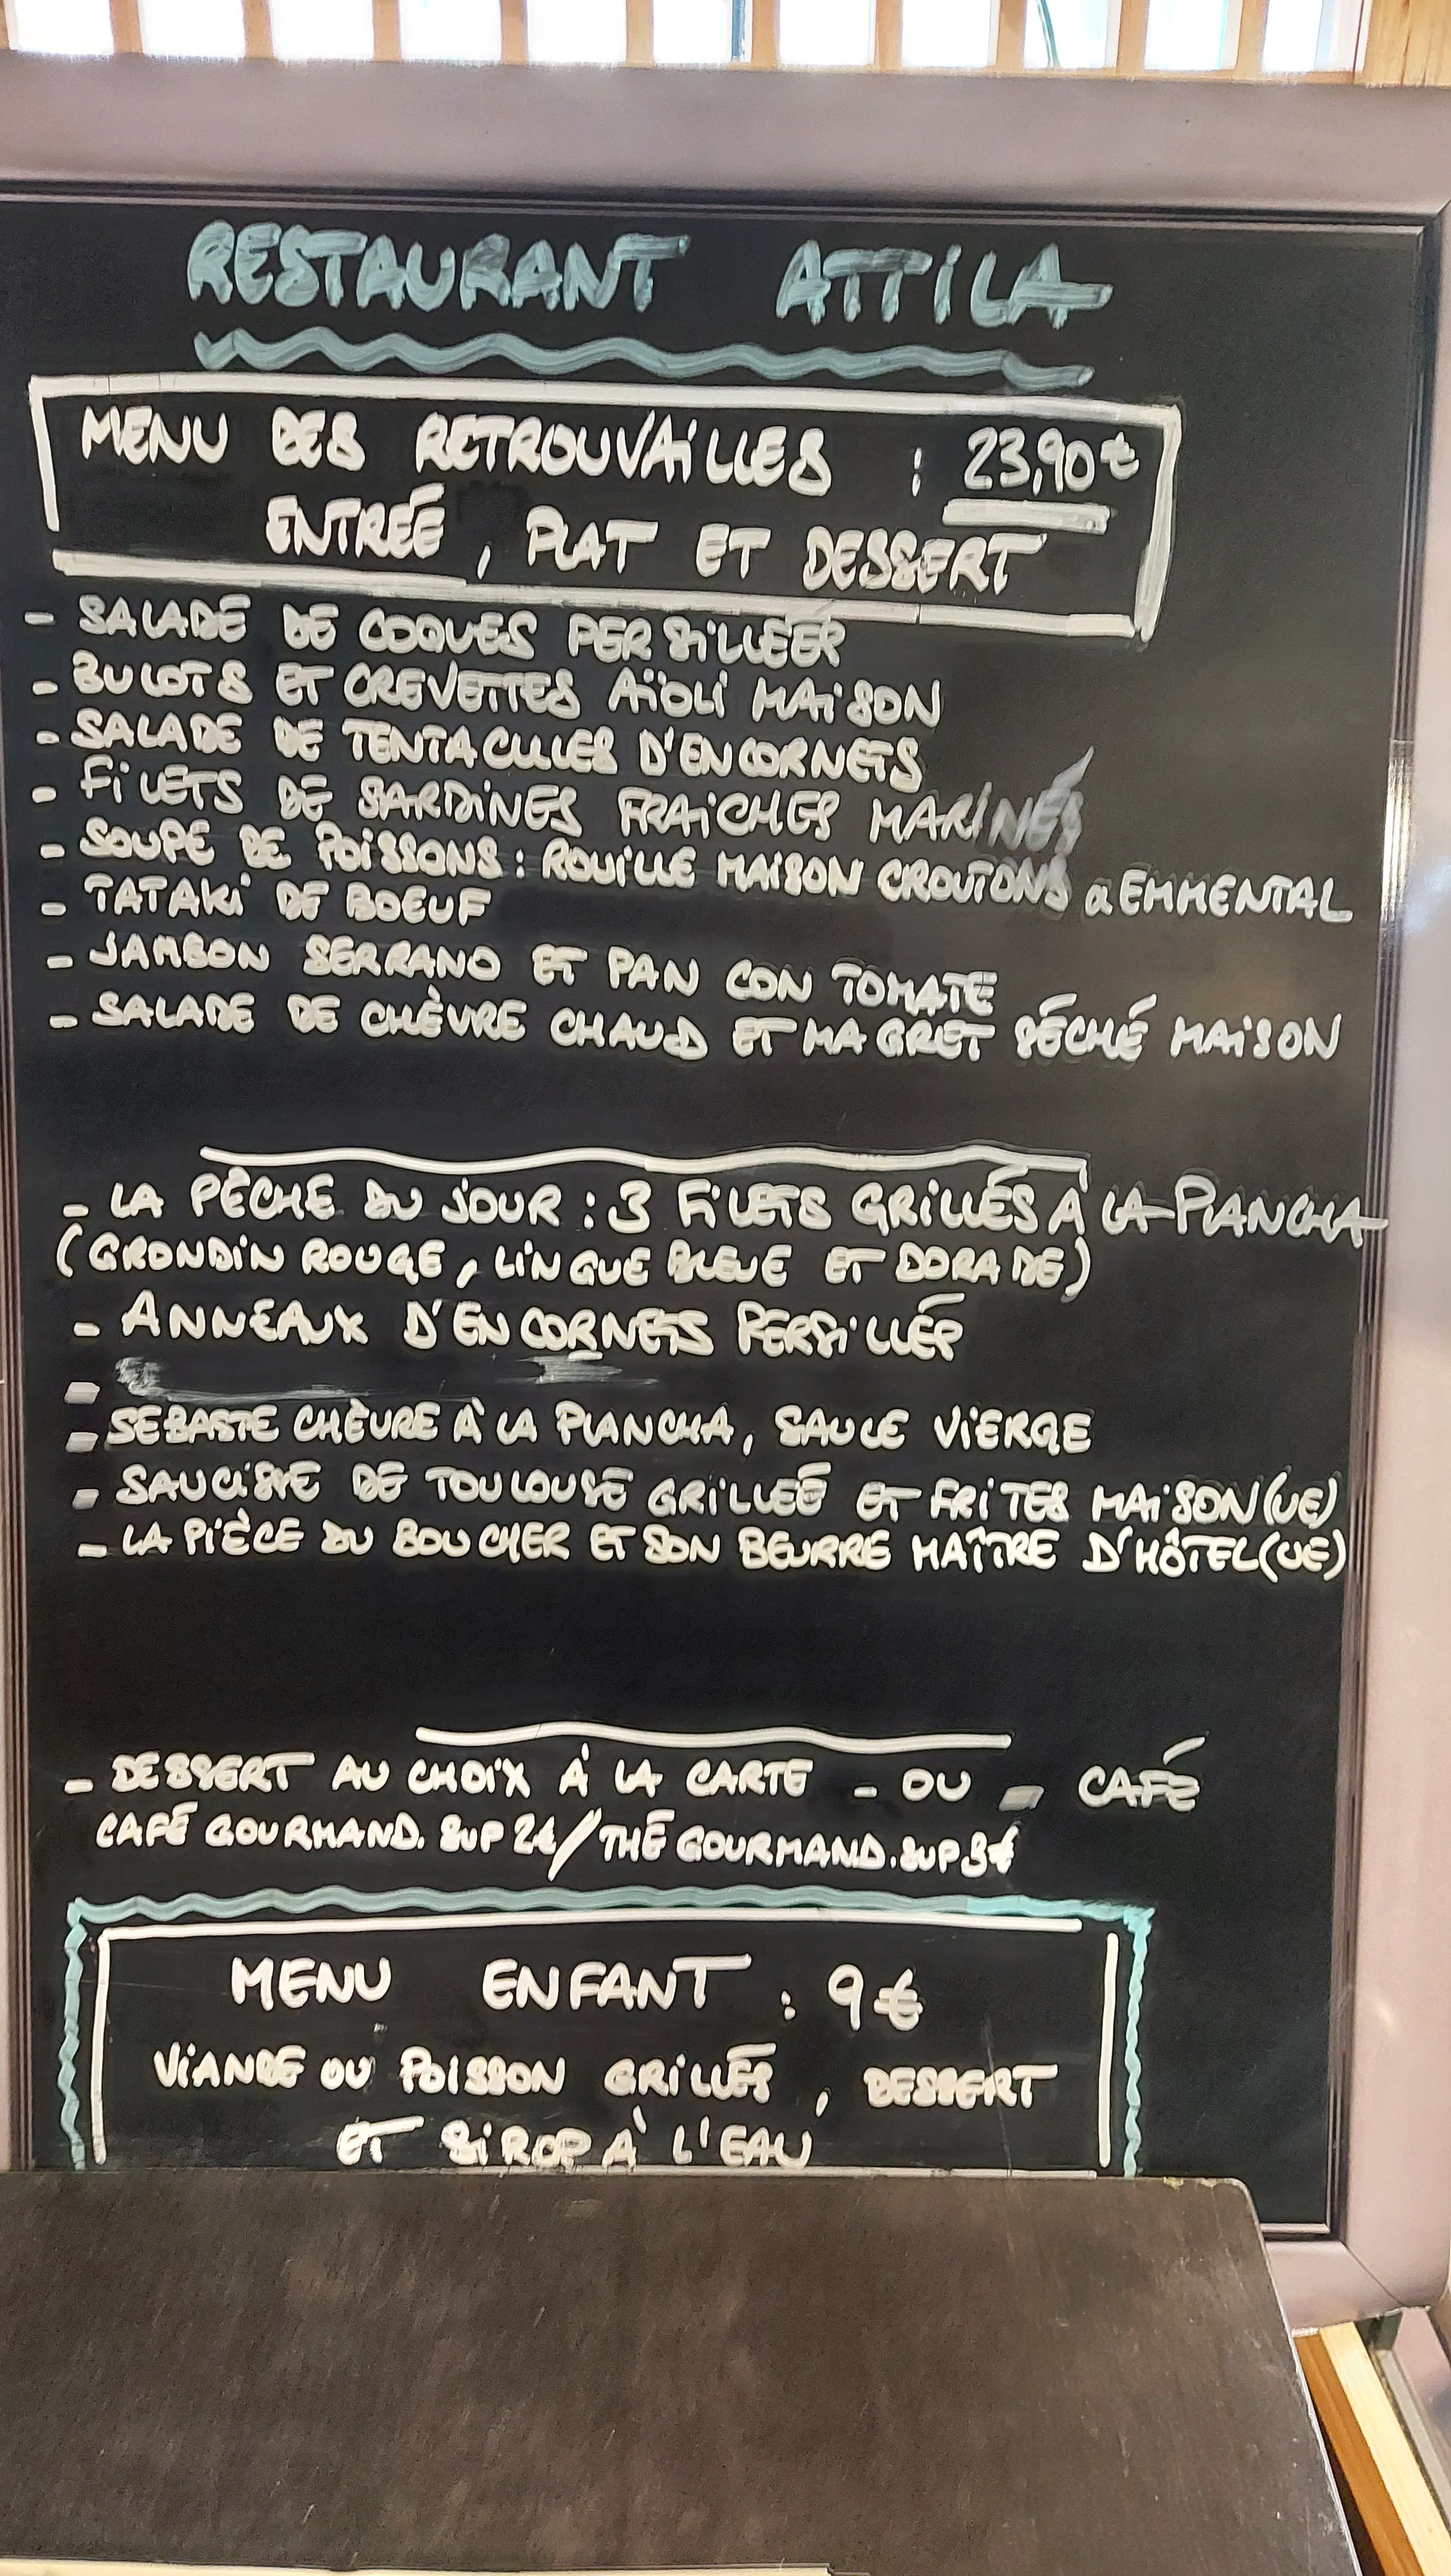 RESTAURANT ATTILA
MENU DES RETROUVAILLES : 23,90€
ENTRÉE, PLAT ET DESSERT
- SALADE DE COQUES PERSILLÉES
- BULOTS ET CREVETTES AÏOLI MAISON
- SALADE DE TENTACULES D'ENCORNETS
- FILETS DE SARDINES FRAICHES MARINÉS
- SOUPE DE POISSONS : ROUILLE MAISON CROUTONS & EMMENTAL
- TATAKI DE BOEUF
- JAMBON SERRANO ET PAN CON TOMATE
- SALADE DE CHÈVRE CHAUD ET MAGRET SÉCHÉ MAISON
- LA PÊCHE DU JOUR : 3 FILETS GRILLÉS À LA PLANCHA
(GRONDIN ROUGE, LINGUE BLEUE ET DORADE)
- ANNEAUX D'ENCORNETS PERSILLÉS
-
- SEBASTE CHÈVRE À LA PLANCHA, SAUCE VIERGE
- SAUCISSE DE TOULOUSE GRILLEÉ ET FRITES MAISON (UE)
- LA PIÈCE DU BOUCHER ET SON BEURRE MAÎTRE D'HÔTEL (UE)
- DESSERT AU CHOIX À LA CARTE - OU - CAFÉ
CAFÉ GOURMAND. SUP 2€ / THÉ GOURMAND. SUP 3€
MENU ENFANT : 9€
VIANDE OU POISSON GRILLÉS, DESSERT
ET SIROP À L'EAU